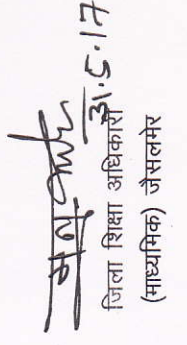 31.5.17
जिला शिक्षा अधिकारी
(माध्यमिक) जैसलमेर